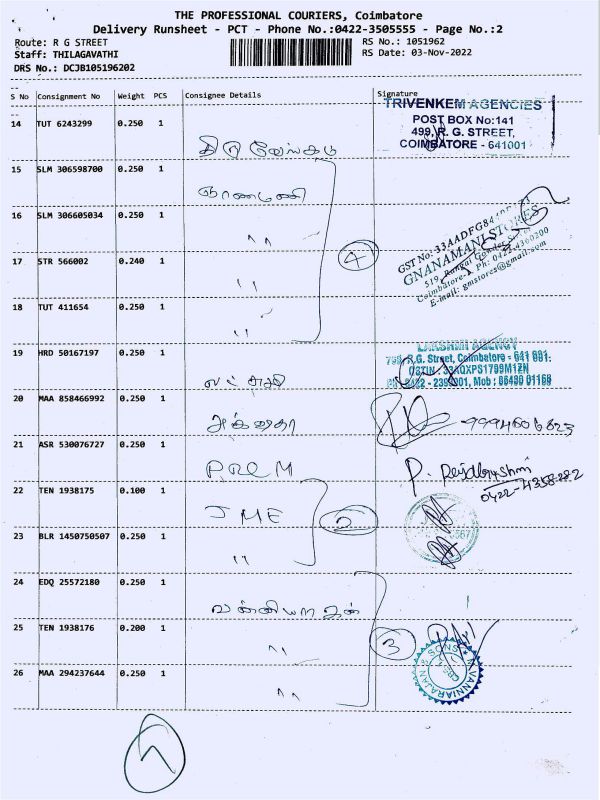 THE PROFESSIONAL COURIERS, Coimbatore
Delivery Runsheet - PCT - Phone No.:0422-3505555 - Page No.:2
Route: R G STREET
RS No.: 1051962
Staff: THILAGAVATHI
RS Date: 03-Nov-2022
DRS No.: DCJB105196202
S No Consignment No Weight PCS Consignee Details Signature
TRIVENKEM AGENCIES
POST BOX No:141
499, R. G. STREET,
COIMBATORE - 641001
14 TUT 6243299 0.250 1
திருவேங்கடம்
15 SLM 306598700 0.250 1
ஞானமணி
16 SLM 306605034 0.250 1
" 
GNANAMANI STORES
Coimbatore-1. Ph: 0422-4360200
E-mail: gmstores@gmail.com
17 STR 566002 0.240 1
"
4
18 TUT 411654 0.250 1
"
19 HRD 50167197 0.250 1
LAKSHMI AGENCY
R.G. Street, Coimbatore - 641 001.
லட்சுமி
20 MAA 858466992 0.250 1
அக்ஷதா
21 ASR 530076727 0.250 1
PREM
P. Rajalakshmi
22 TEN 1938175 0.100 1
JME
2
23 BLR 1450750507 0.250 1
"
24 EDQ 25572180 0.250 1
வன்னியராஜன்
25 TEN 1938176 0.200 1
"
3
N.VANNIARAJAN & SONS
26 MAA 294237644 0.250 1
"
7